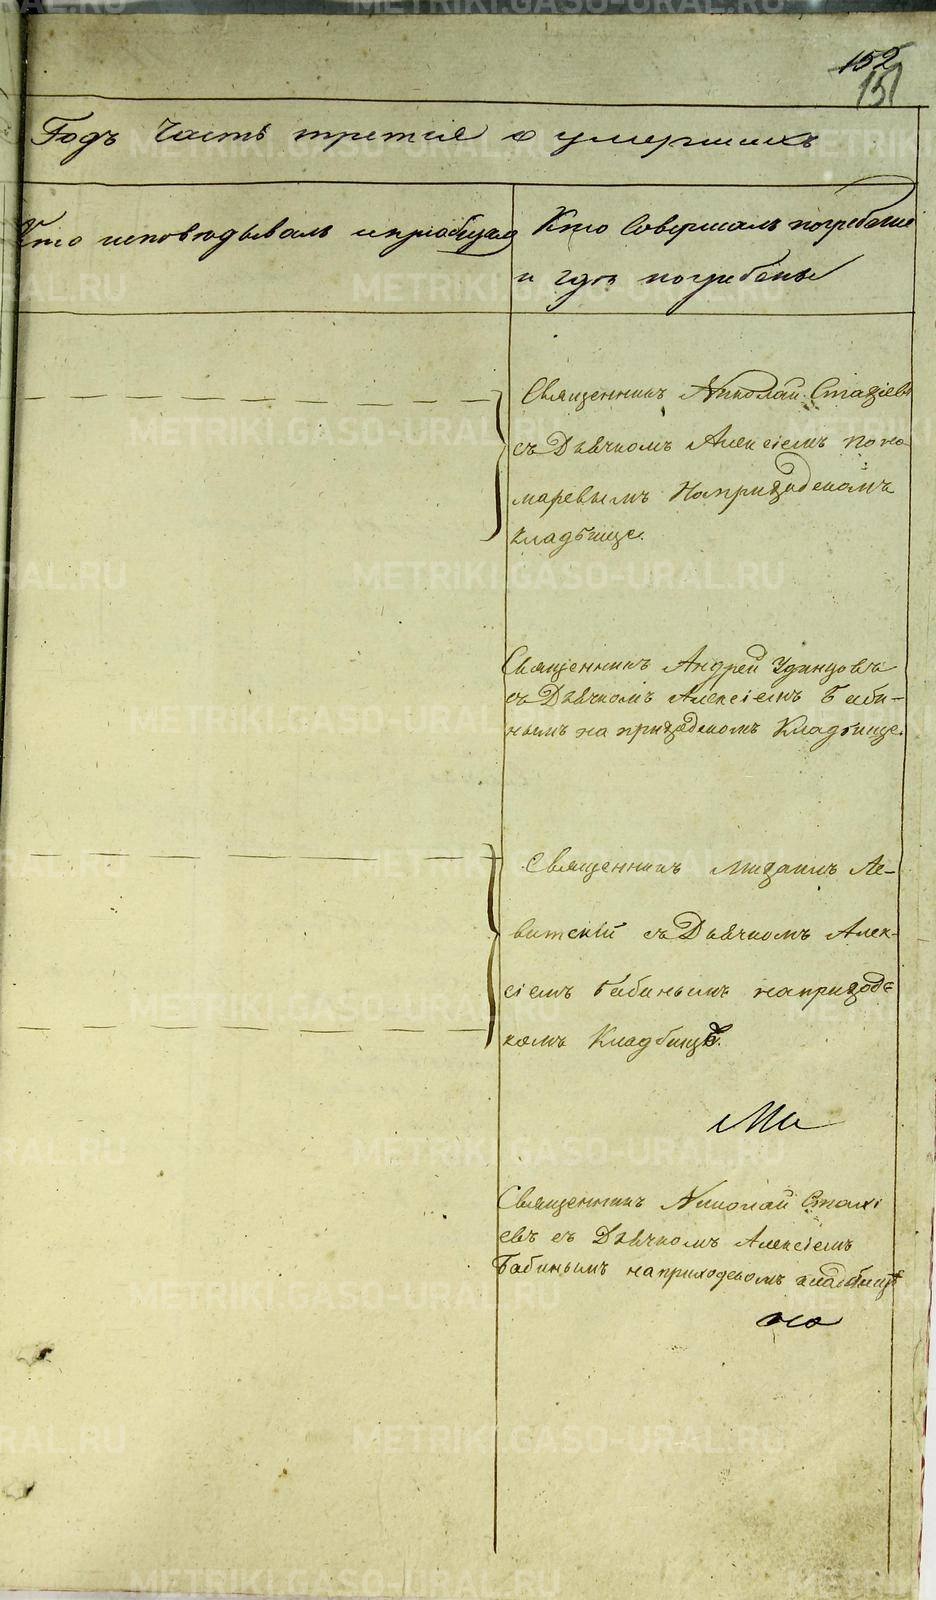 152
151
Годъ Часть третія о умершихъ
Кто исповѣдывалъ и пріобщалъ
Кто Совершалъ погребеніе
и гдѣ погребены
Священникъ Николай Стахіевъ
съ Дьячкомъ Алексіемъ Поно
маревымъ На приходскомъ
кладбище.
Священникъ Андрей Удинцовъ
съ Дьячкомъ Алексіемъ Баби-
нымъ на приходскомъ Кладбище.
Священникъ Михаилъ Ле-
витскій съ Дьячкомъ Алек-
сіемъ Бабинымъ на приход
комъ Кладбищѣ.
Ми
Священникъ Николай Стахі
евъ съ Дьячкомъ Алексіемъ
Бабинымъ на приходскомъ кладбищѣ
на
METRIKI.GASO-URAL.RU